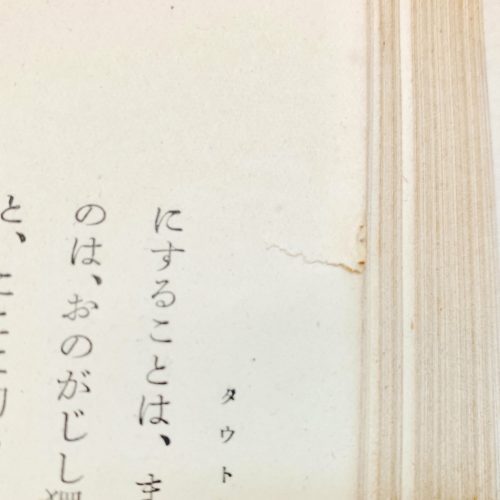 タウト
にすることは、ま
のは、おのがじし
と、